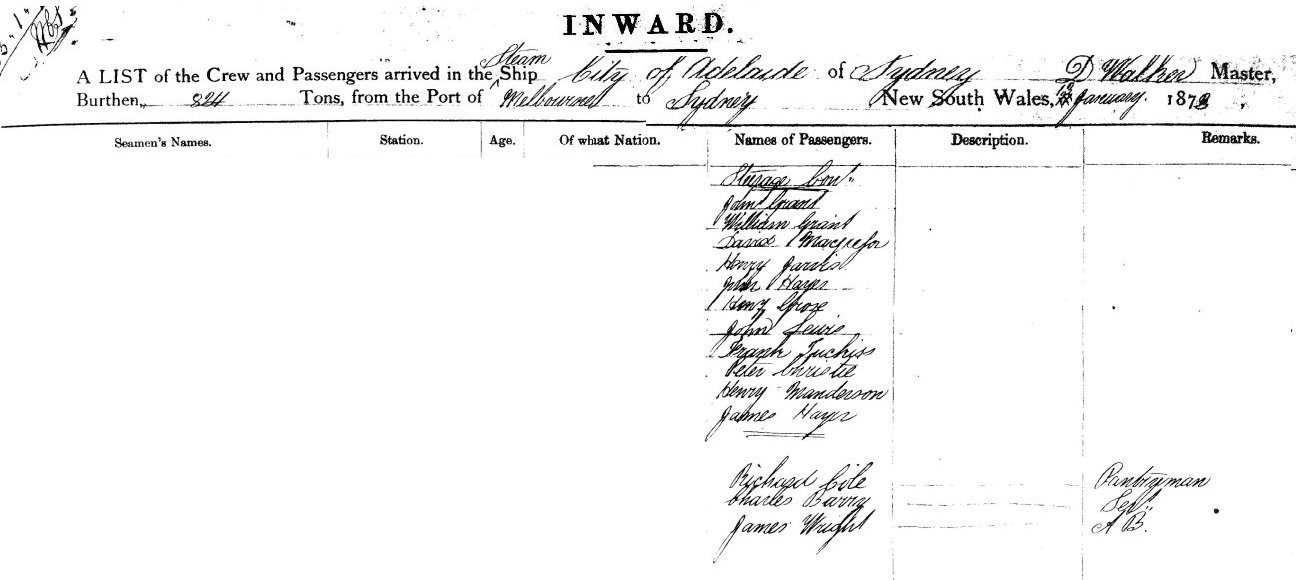 INWARD.
A LIST of the Crew and Passengers arrived in the Steam Ship City of Adelaide of Sydney D Walker Master,
Burthen, 824 Tons, from the Port of Melbourne to Sydney New South Wales, January. 187
Seamen's Names. Station. Age. Of what Nation. Names of Passengers. Description. Remarks.
Steerage Cont.
John Grant
William Grant
David Macgregor
Henry Jarvis
John Hayes
Henry
John Lewis
Frank
Peter Christie
Henry Manderson
James Hayes
Richard Cole Pantryman
Charles Barry
James Wright A B.